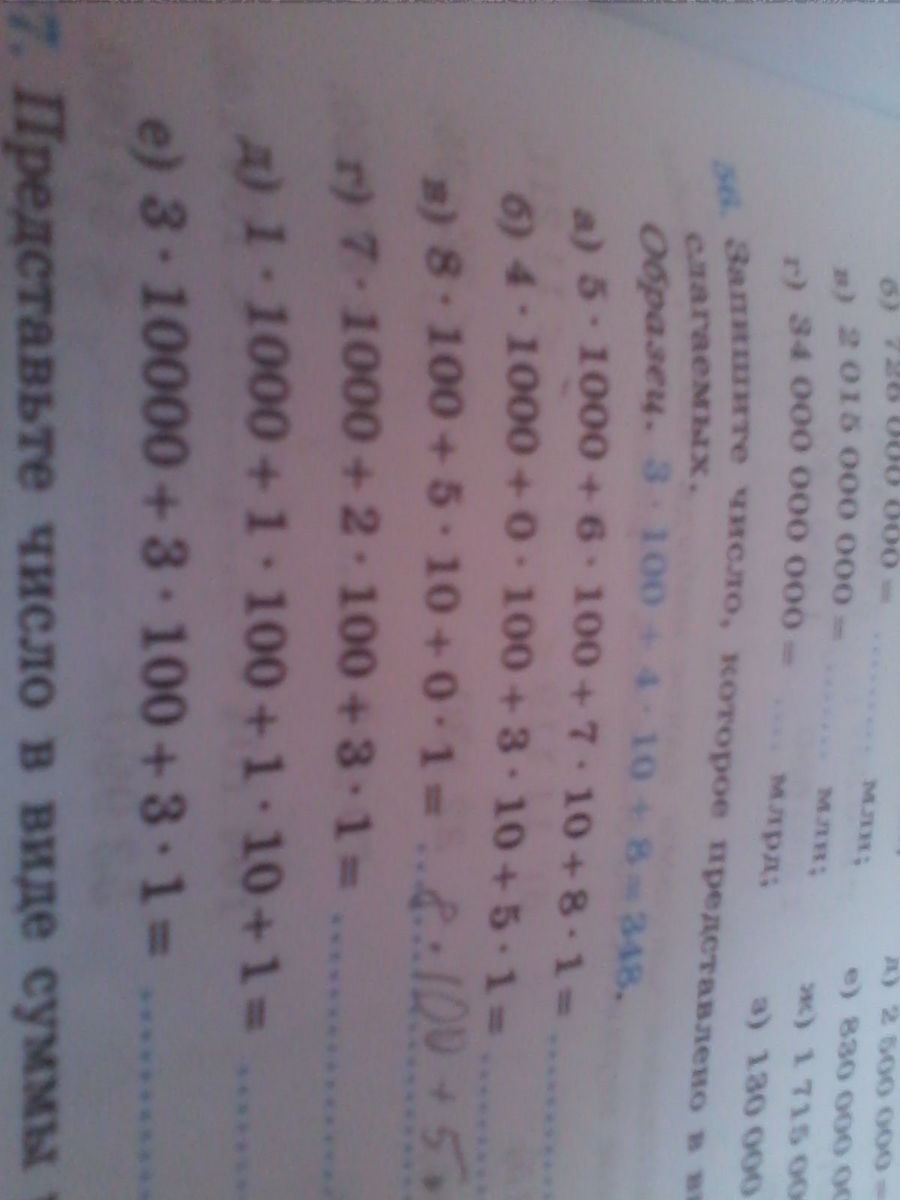 б) 726 000 000 = ......... млн;
в) 2 015 000 000 = ......... млн;
г) 34 000 000 000 = .... млрд;
д) 2 500 000 =
е) 830 000 0
ж) 1 715 00
з) 130 000
56. Запишите число, которое представлено в
слагаемых.
Образец. 3 · 100 + 4 · 10 + 8 = 348.
а) 5 · 1000 + 6 · 100 + 7 · 10 + 8 · 1 = ............
б) 4 · 1000 + 0 · 100 + 3 · 10 + 5 · 1 = ............
в) 8 · 100 + 5 · 10 + 0 · 1 = ... 8 · 100 + 5 ·
г) 7 · 1000 + 2 · 100 + 3 · 1 = ....................
д) 1 · 1000 + 1 · 100 + 1 · 10 + 1 = ............
е) 3 · 10000 + 3 · 100 + 3 · 1 = ...............
7. Представьте число в виде суммы